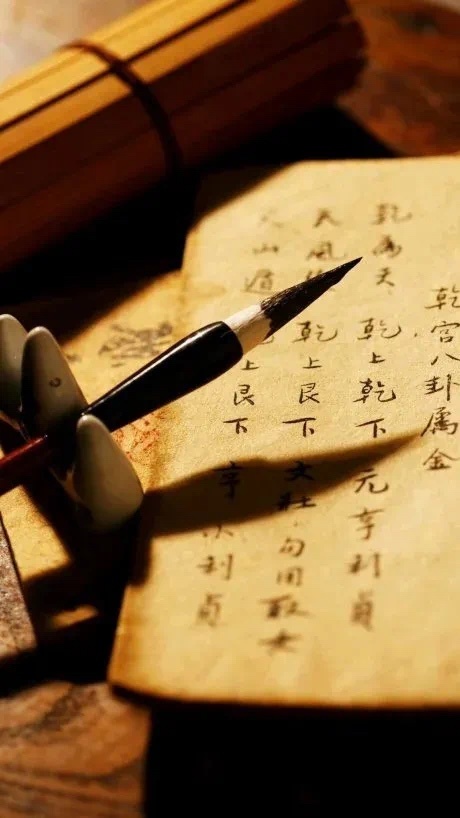 乾宫八卦属金
乾為天 乾上乾下 元亨利貞
天風 乾上艮下 女壯 勿用取女
山遁 上艮下 亨 小利貞